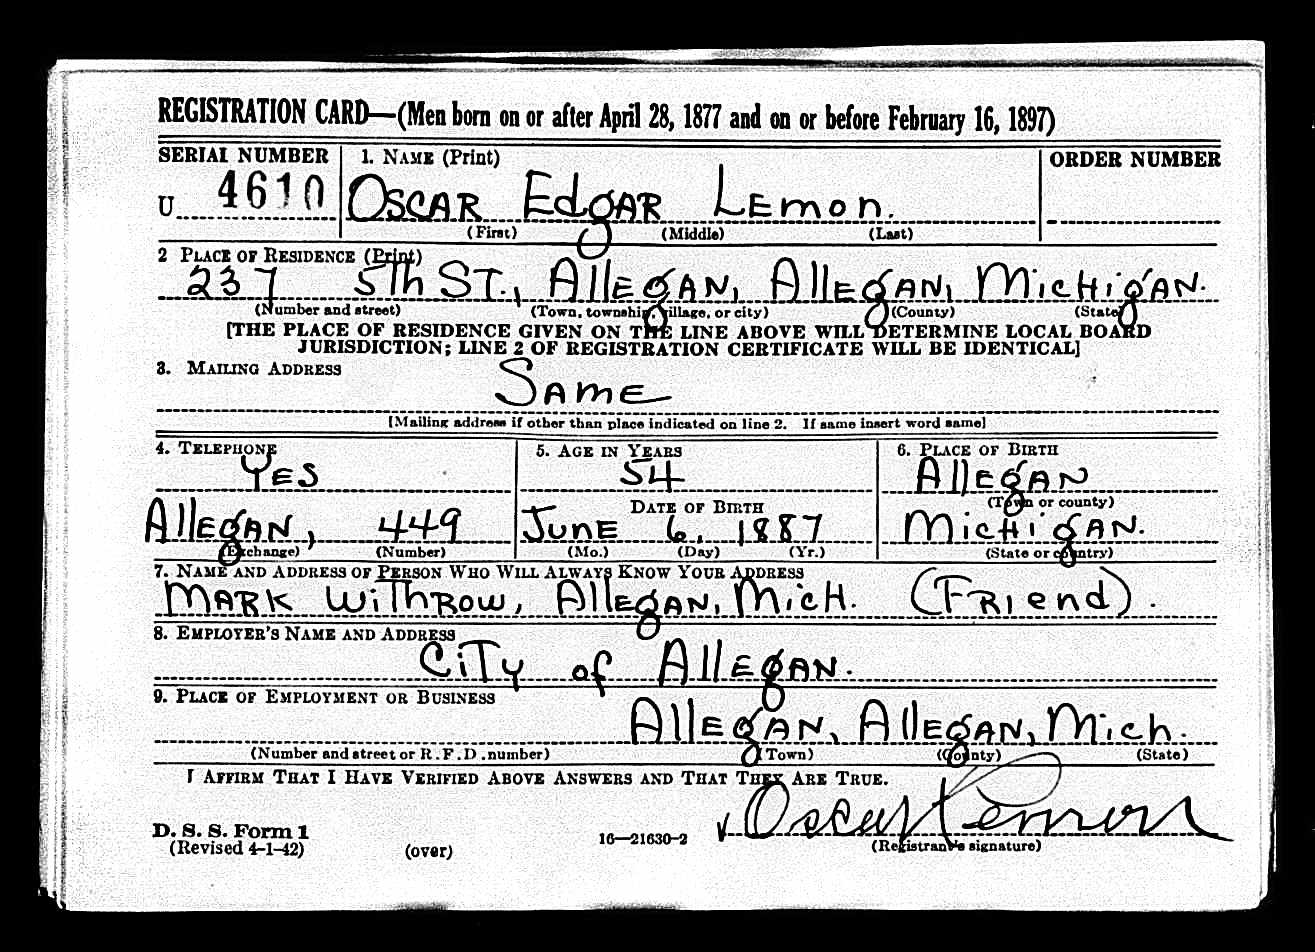 REGISTRATION CARD—(Men born on or after April 28, 1877 and on or before February 16, 1897)
SERIAL NUMBER 1. NAME (Print) ORDER NUMBER
U 4610 OSCAR EdgAR LEmon.
(First) (Middle) (Last)
2 PLACE OF RESIDENCE (Print)
237 5Th ST., AllEgAN, AllEgAN, MicHigAN.
(Number and street) (Town, township, village, or city) (County) (State)
[THE PLACE OF RESIDENCE GIVEN ON THE LINE ABOVE WILL DETERMINE LOCAL BOARD
JURISDICTION; LINE 2 OF REGISTRATION CERTIFICATE WILL BE IDENTICAL]
3. MAILING ADDRESS
SAmE
[Mailing address if other than place indicated on line 2. If same insert word same]
4. TELEPHONE 5. AGE IN YEARS 6. PLACE OF BIRTH
YES 54 AllEgAN
DATE OF BIRTH (Town or county)
AllEgAN, 449 JUNE 6, 1887 MicHigAN.
(Exchange) (Number) (Mo.) (Day) (Yr.) (State or country)
7. NAME AND ADDRESS OF PERSON WHO WILL ALWAYS KNOW YOUR ADDRESS
MARK WiThROW, AllEgAN, MicH. (FRiend).
8. EMPLOYER'S NAME AND ADDRESS
CiTy of AllEgAN.
9. PLACE OF EMPLOYMENT OR BUSINESS
AllEgAN, AllEgAN, Mich.
(Number and street or R. F. D. number) (Town) (County) (State)
I AFFIRM THAT I HAVE VERIFIED ABOVE ANSWERS AND THAT THEY ARE TRUE.
Oscar Lemon
D. S. S. Form 1
(Revised 4-1-42) (over) 16—21630-2 (Registrant's signature)